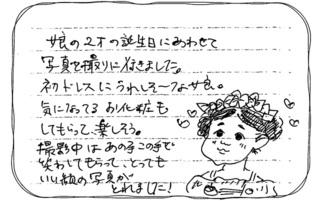 娘の2才の誕生日にあわせて
写真を撮りに行きました。
初ドレスにうれしそ〜な娘。
気になってる お化粧も
してもらって、楽しそう。
撮影中は あの手この手で
笑わしてもらって、とっても
いい顔の写真が
とれました！